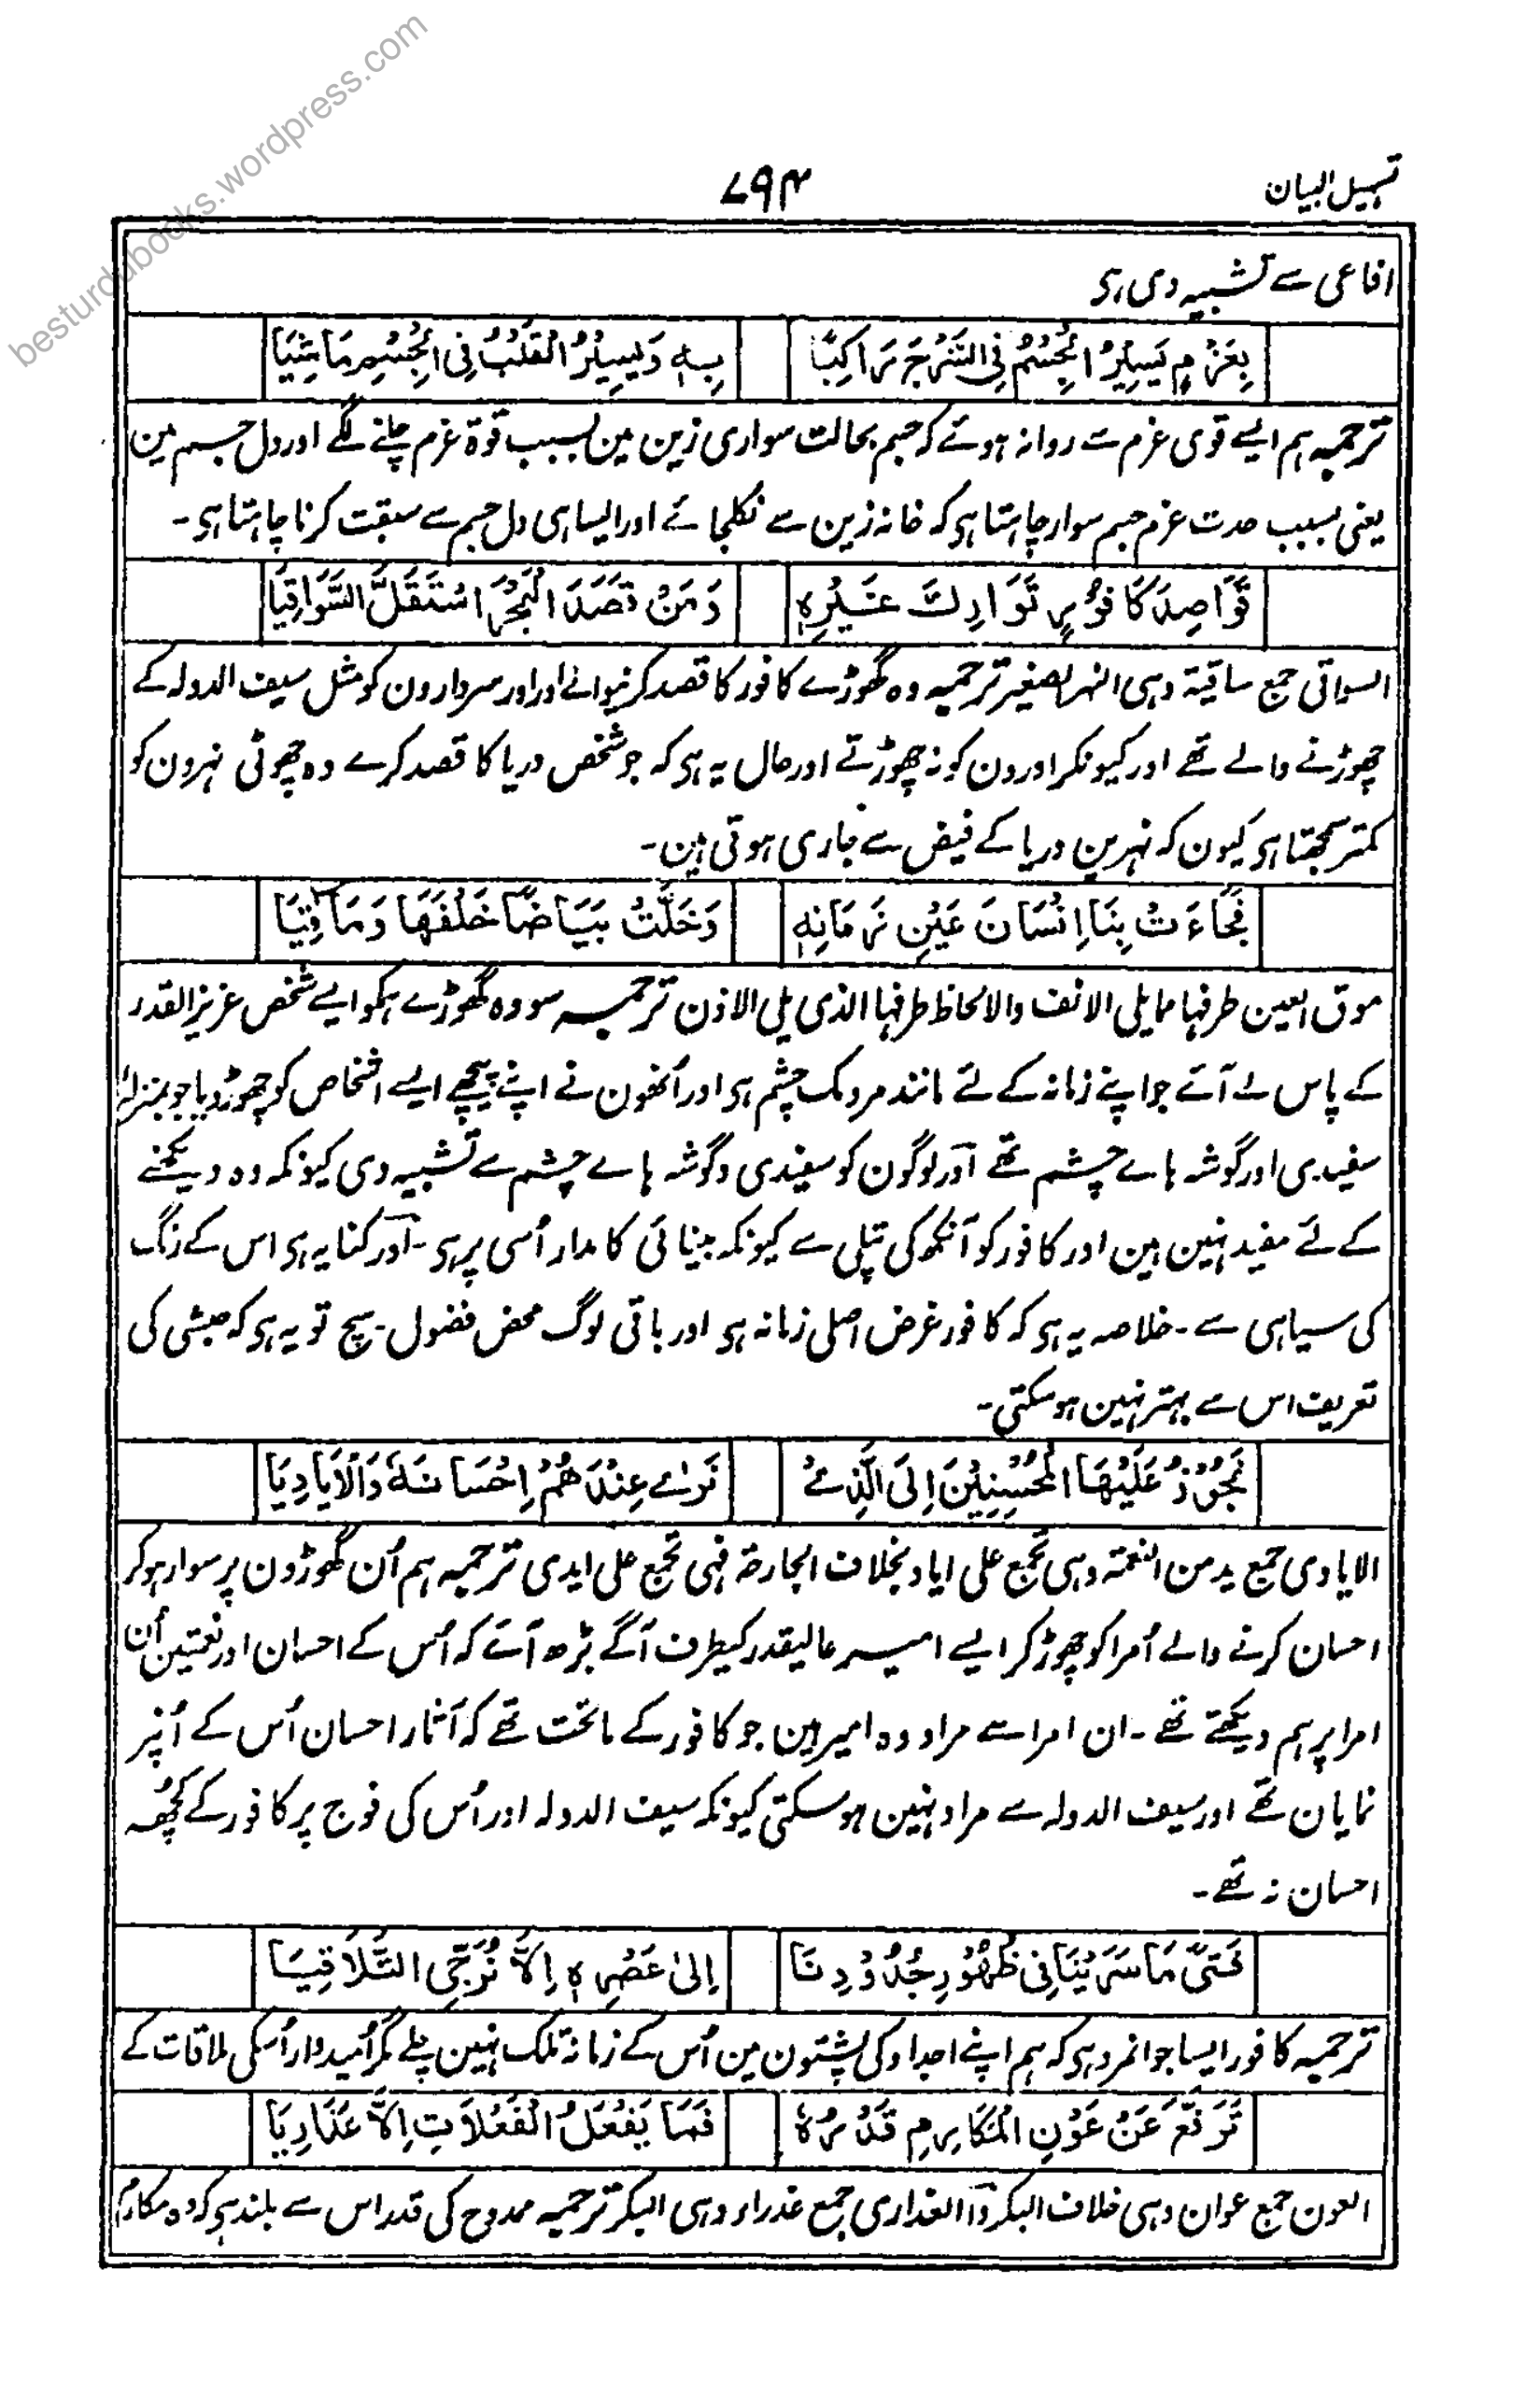 besturdubooks.wordpress.com
تسہیل البیان
۷۹۴
افاعی سے تشبیہ دی ہی
بِعَزْمٍ يَسِيْرُ الْجِسْمُ فِي السَّرْجِ رَاكِبًا بِهٖ وَيَسِيْرُ الْقَلْبُ فِي الْجِسْمِ مَاشِيَا
ترجمہ ہم ایسے قوی عزم سے روانہ ہوئے کہ جسم بحالت سواری زین مین بسبب قوۃ عزم چلنے لگے اور دل جسم مین
یعنی بسبب حدت عزم جسم سوار چاہتا ہی کہ خانہ زین سے نکلجائے اور ایسا ہی دل جسم سے سبقت کرنا چاہتا ہی۔
قَوَاصِدَ كَافُوْرٍ تَوَارِكَ غَيْرِهٖ وَمَنْ قَصَدَ الْبَحْرَ اسْتَقَلَّ السَّوَاقِيَا
السواقی جمع ساقیۃ وہی النہر الصغیر ترجمہ وہ گھوڑے کافور کا قصد کرنیوالے اور اور سردارون کو مثل سیف الدولہ کے
چھوڑنے والے تھے اور کیونکر اورون کو نہ چھوڑتے اور حال یہ ہی کہ جو شخص دریا کا قصد کرے وہ چھوٹی نہرون کو
کمتر سمجھتا ہی کیون کہ نہرین دریا کے فیض سے جاری ہوتی ہین۔
فَجَاءَتْ بِنَا اِنْسَانَ عَيْنِ زَمَانِهٖ وَخَلَّتْ بَيَاضًا خَلْفَهَا وَمَآقِيَا
موق العین طرفہا مما یلی الانف والالحاظ طرفہا الذی یلی الاذن ترجمہ سو وہ گھوڑے ہمکو ایسے شخص عزیز القدر
کے پاس لے آئے جو اپنے زمانہ کے لئے مانند مردمک چشم ہی اور اُنھون نے اپنے پیچھے ایسے اشخاص کو چھوڑدیا جو بمنزلہ
سفیدی اور گوشہ ہاے چشم تھے اور لوگون کو سفیدی وگوشہ ہاے چشم سے تشبیہ دی کیونکہ وہ دیکھنے
کے لئے مفید نہین ہین اور کافور کو آنکھ کی پتلی سے کیونکہ بینائی کا مدار اُسی پر ہی۔ اور کنایہ ہی اس کے رنگ
کی سیاہی سے۔ خلاصہ یہ ہی کہ کافور غرض اصلی زمانہ ہی اور باقی لوگ محض فضول۔ سچ تو یہ ہی کہ حبشی کی
تعریف اس سے بہتر نہین ہوسکتی۔
نَجُوْزُ عَلَيْهَا الْمُحْسِنِيْنَ اِلَى الَّذِيْ نَرٰے عِنْدَهُمْ اِحْسَانَهٗ وَالْاَيَادِيَا
الایادی جمیع ید من النعمۃ وہی تجمع علی ایاد بخلاف الجارحۃ فہی تجمع علی ایدی ترجمہ ہم اُن گھوڑون پر سوار ہوکر
احسان کرنے والے اُمرا کو چھوڑکر ایسے امیر عالیقدر کیطرف آگے بڑھ آئے کہ اُس کے احسان اور نعمتین اُن
امرا پر ہم دیکھتے تھے۔ ان امرا سے مراد وہ امیر ہین جو کافور کے ماتحت تھے کہ آثار احسان اُس کے اُنپر
نمایان تھے اور سیف الدولہ سے مراد نہین ہوسکتی کیونکہ سیف الدولہ اور اُس کی فوج پر کافور کے کچھہ
احسان نہ تھے۔
فَتًى مَا سَرَيْنَا فِي ظُهُوْرِ جُدُوْدِنَا اِلٰى عَصْرِهٖ اِلَّا نُرَجِّى التَّلَاقِيَا
ترجمہ کافور ایسا جوانمرد ہی کہ ہم اپنے اجداد کی پشتون مین اُس کے زمانہ تلک نہین چلے مگر اُمیدوار اُسکی ملاقات کے
تَرَفَّعَ عَنْ عَوْنِ الْمَكَارِمِ قَدْرُهٗ فَمَا يَفْعَلُ الْفَعَلَاتِ اِلَّا عَذَارِيَا
العون جمع عوان وہی خلاف البکر والعذاری جمع عذراء وہی البکر ترجمہ ممدوح کی قدر اس سے بلند ہی کہ وہ مکارم